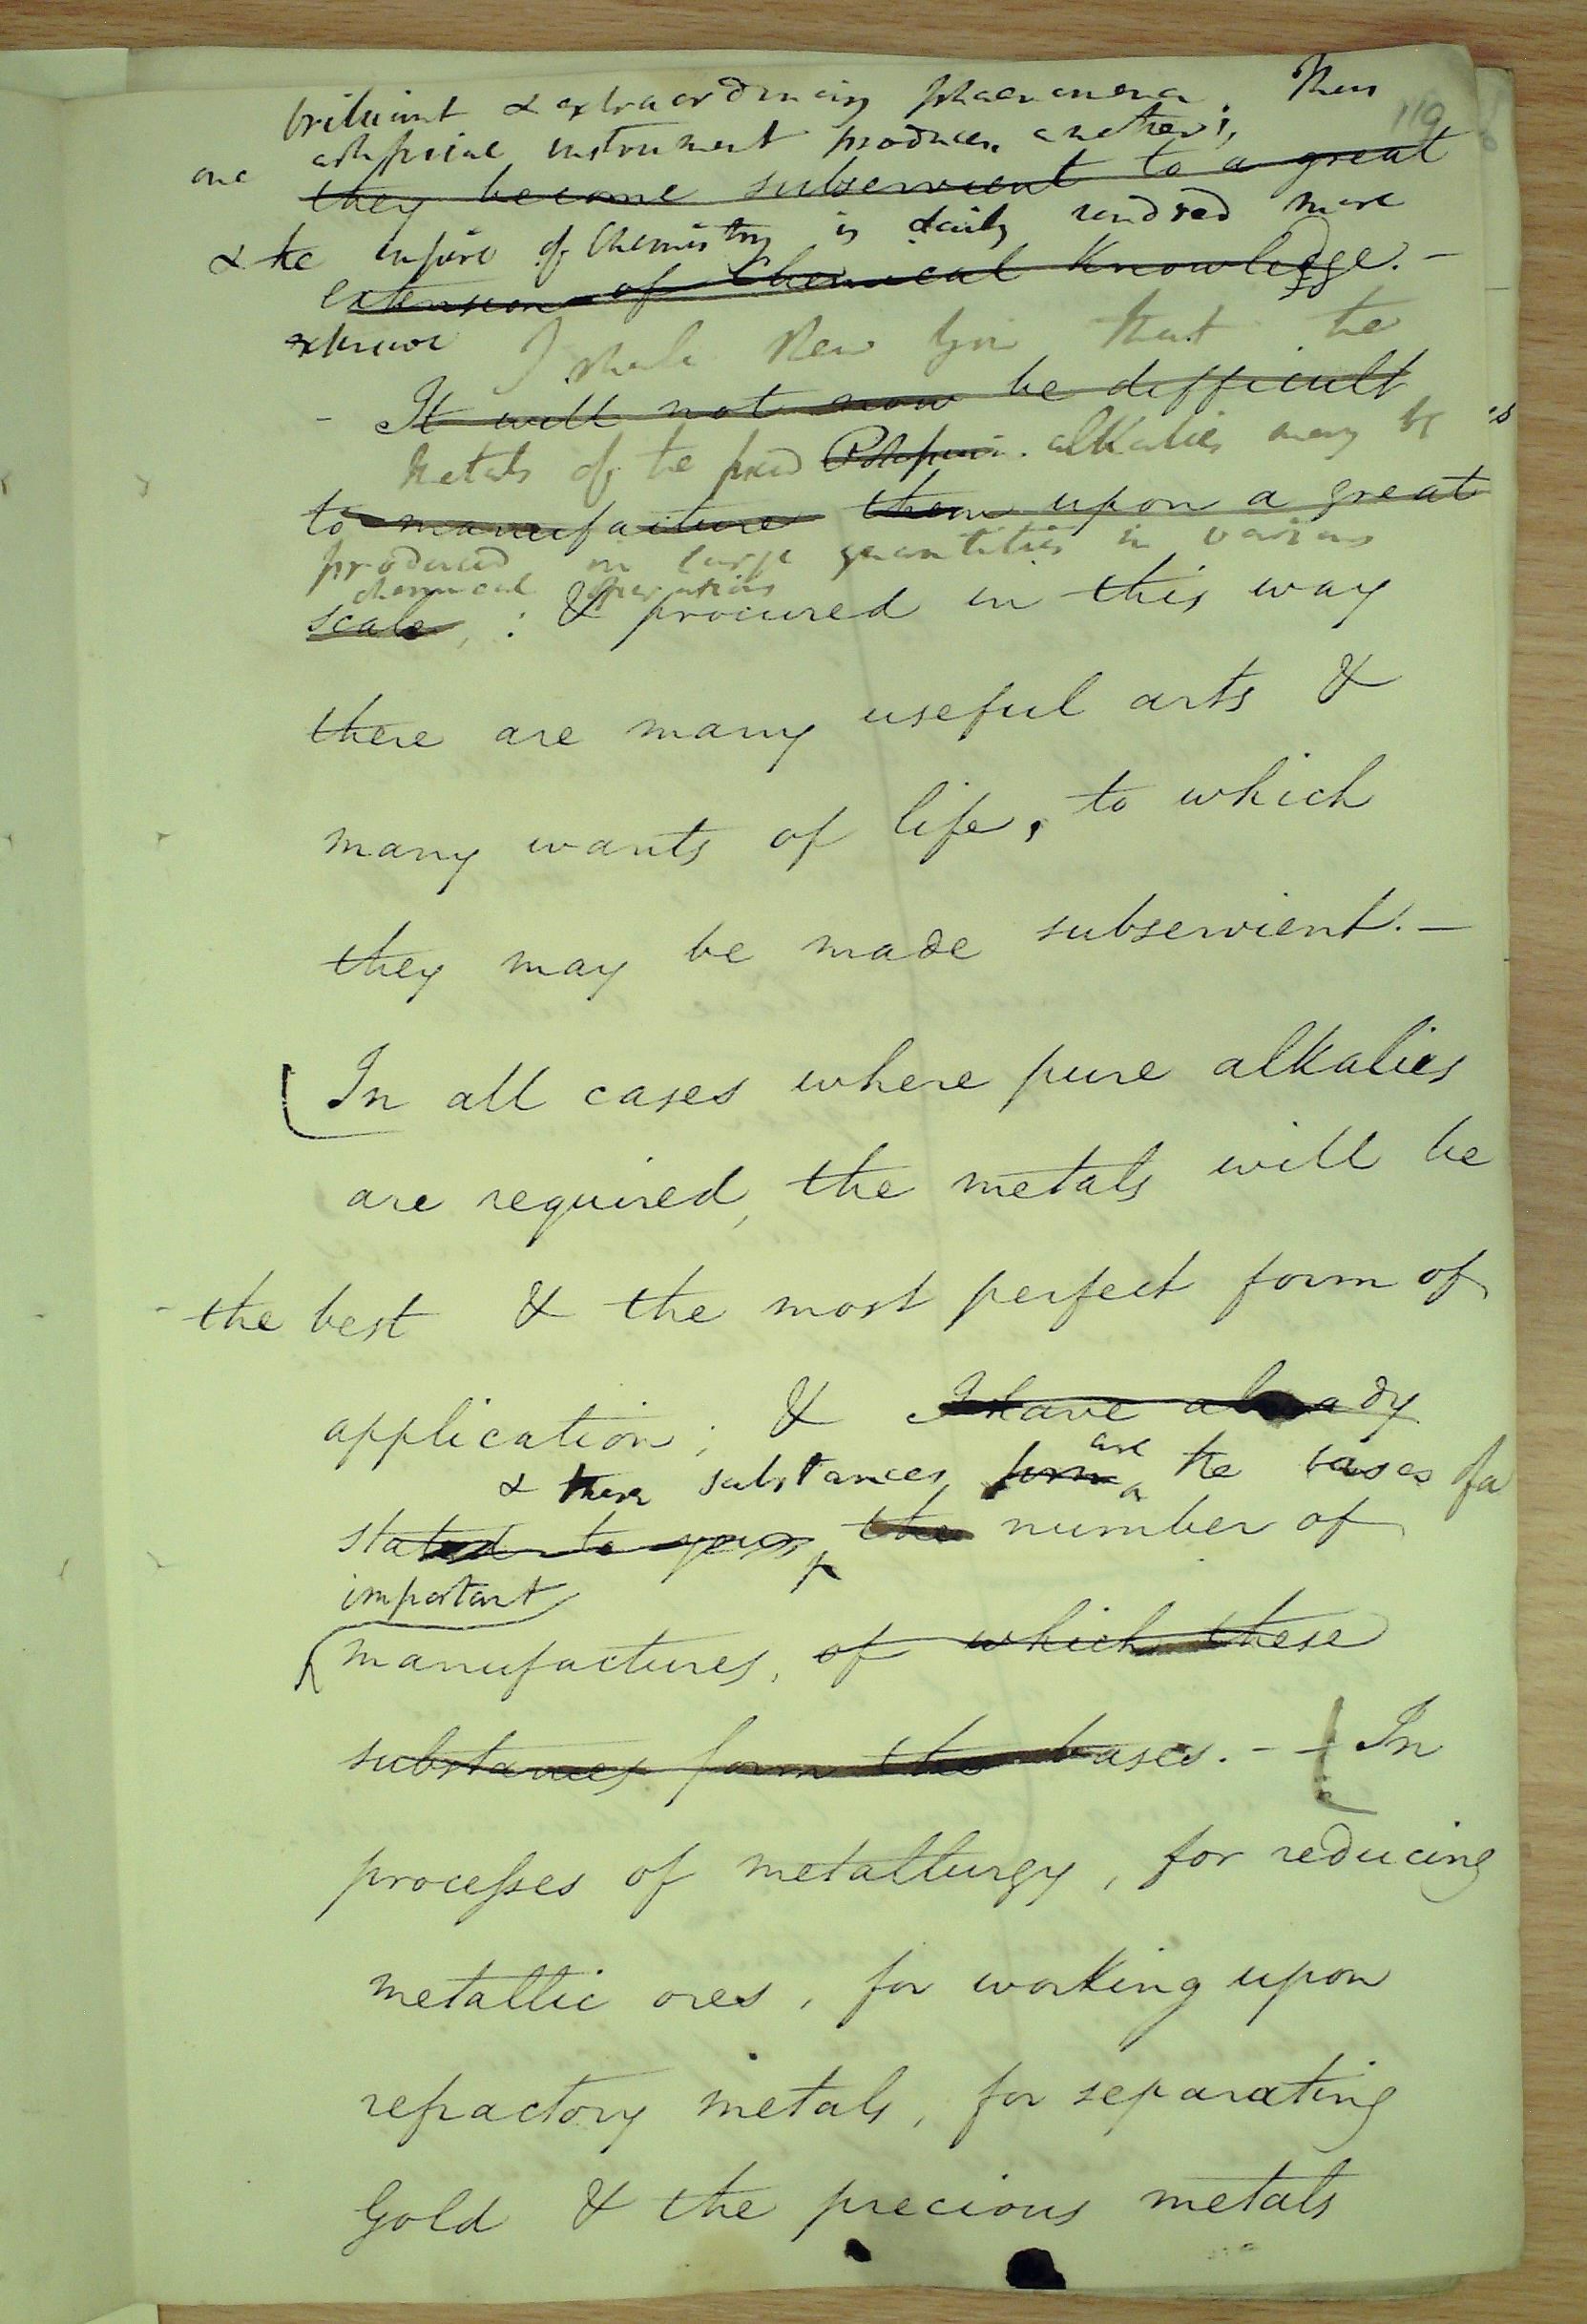 119
brilliant & extraordinary phaenomena. Thus
one artificial instrument produces another;
they become subservient to a great
& the empire of Chemistry is daily rendred more
extension of Chemical Knowledge. -
extensive I shall shew you that the
- It will not now be difficult
Metals of the fixed alkalies may be
to manufacture them upon a great
produced in large quantities in various
chemical operations
scale, : & procured in this way
there are many useful arts &
many wants of life, to which
they may be made subservient. -
In all cases where pure alkalies
are required, the metals will be
the best & the most perfect form of
application; & I have already
are
& these substances form the bases of a
stated to you, the number of
important
manufactures, of which these
substances form the bases. - - In
processes of metallurgy, for reducing
metallic ores, for working upon
refractory metals, for separating
Gold & the precious metals